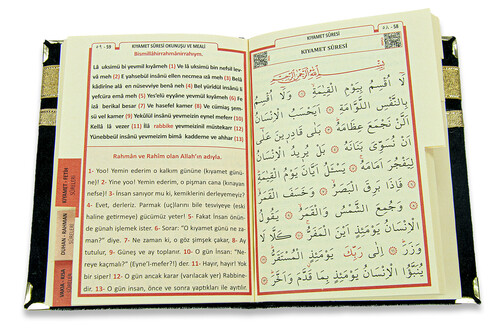 ٥٩ - 59 KIYAMET SÛRESİ OKUNUŞU ve MEALİ
Bismillâhirrahmânirrahıym.
Lâ uksimü bi yevmil kıyâmeh (1) Ve lâ uksimü bin nefsil lev
vâ meh (2) E yahsebül insânü ellen necmea ızâ meh (3) Belâ
kâdirîne alâ en nüsevviye benâ neh (4) Bel yürîdül insânü li
yefcüra emâ meh (5) Yes'elü eyyâne yevmül kıyâmeh (6) Fe
izâ berikal besar (7) Ve hasefel kamer (8) Ve cümiaş şem-
sü vel kamer (9) Yekûlül insânü yevmeizin eynel mefer (10)
Kellâ lâ vezer (11) İlâ rabbike yevmeizinil müstekarr (12)
Yünebbeül insânü yevmeizin bimâ kaddeme ve ahhar (13)
Rahmân ve Rahîm olan Allah'ın adıyla.
1- Yoo! Yemin ederim o kalkım gününe (kıyamet günü-
ne)! 2- Yine yoo! Yemin ederim, o pişman cana (kınayan
nefse)! 3- İnsan sanıyor mu ki, kemiklerini derleyemeyiz?
4- Evet, derleriz. Parmak (uç)larını bile tesviyeye (eski
haline getirmeye) gücümüz yeter! 5- Fakat İnsan önün-
de günah işlemek ister. 6- Sorar: "O kıyamet günü ne za-
man?" diye. 7- Ne zaman ki, o göz şimşek çakar, 8- Ay
tutulur, 9- Güneş ve ay toplanır. 10- O gün İnsan: "Ne-
reye kaçmalı?" (Eyne'l-mefer?!) der. 11- Hayır, hayır! Yok
bir siper! 12- O gün ancak karar (varılacak yer) Rabbine-
dir. 13- O gün insan, önce ve sonra yaptıkları ile ayıtılır.
KIYAMET - FETİH
SÛRELERİ
DUHAN - RAHMAN
SÛRELERİ
VAKIA - KISA
SÛRELER
KIYAMET SÛRESİ ٥٨ - 58
KIYAMET SÛRESİ
بِسْمِ اللّٰهِ الرَّحْمٰنِ الرَّحِيمِ
لَا اُقْسِمُ بِيَوْمِ الْقِيٰمَةِ وَلَا اُقْسِمُ
بِالنَّفْسِ اللَّوَّامَةِ اَيَحْسَبُ الْاِنْسَانُ
اَلَّنْ نَجْمَعَ عِظَامَهُ بَلٰى قَادِرِينَ عَلٰى
اَنْ نُسَوِّيَ بَنَانَهُ بَلْ يُرِيدُ الْاِنْسَانُ
لِيَفْجُرَ اَمَامَهُ يَسْئَلُ اَيَّانَ يَوْمُ الْقِيٰمَةِ
فَاِذَا بَرِقَ الْبَصَرُ وَخَسَفَ الْقَمَرُ
وَجُمِعَ الشَّمْسُ وَالْقَمَرُ يَقُولُ
الْاِنْسَانُ يَوْمَئِذٍ اَيْنَ الْمَفَرُّ كَلَّا لَا
وَزَرَ اِلٰى رَبِّكَ يَوْمَئِذٍ الْمُسْتَقَرُّ
يُنَبَّؤُا الْاِنْسَانُ يَوْمَئِذٍ بِمَا قَدَّمَ وَاَخَّرَ